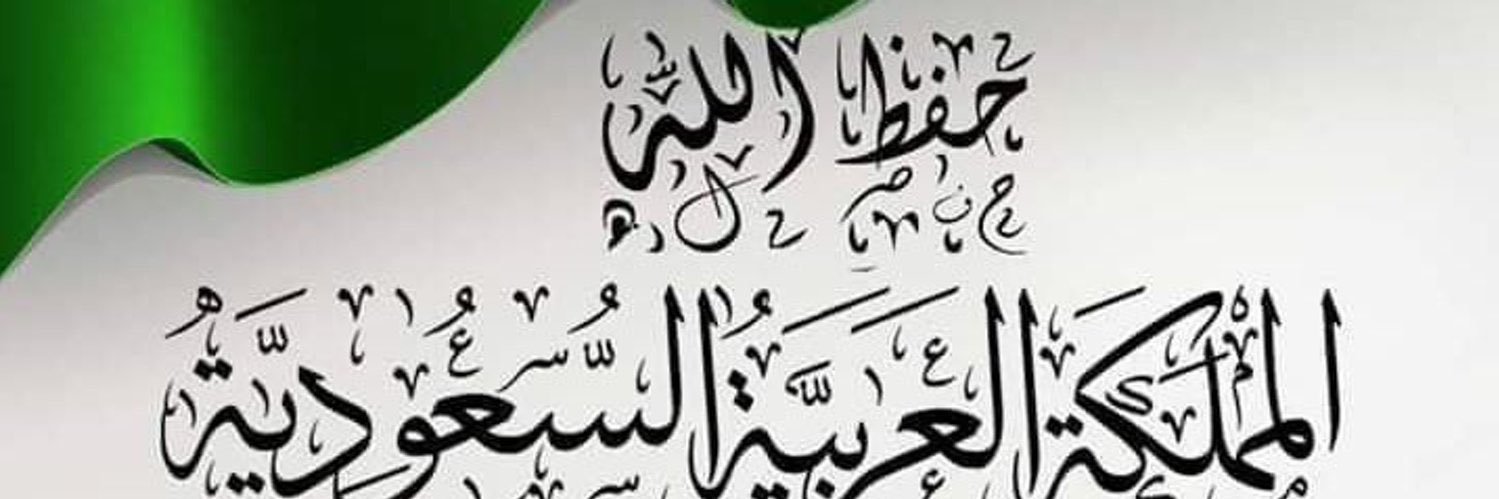 حفظ الله
المملكة العربية السعودية